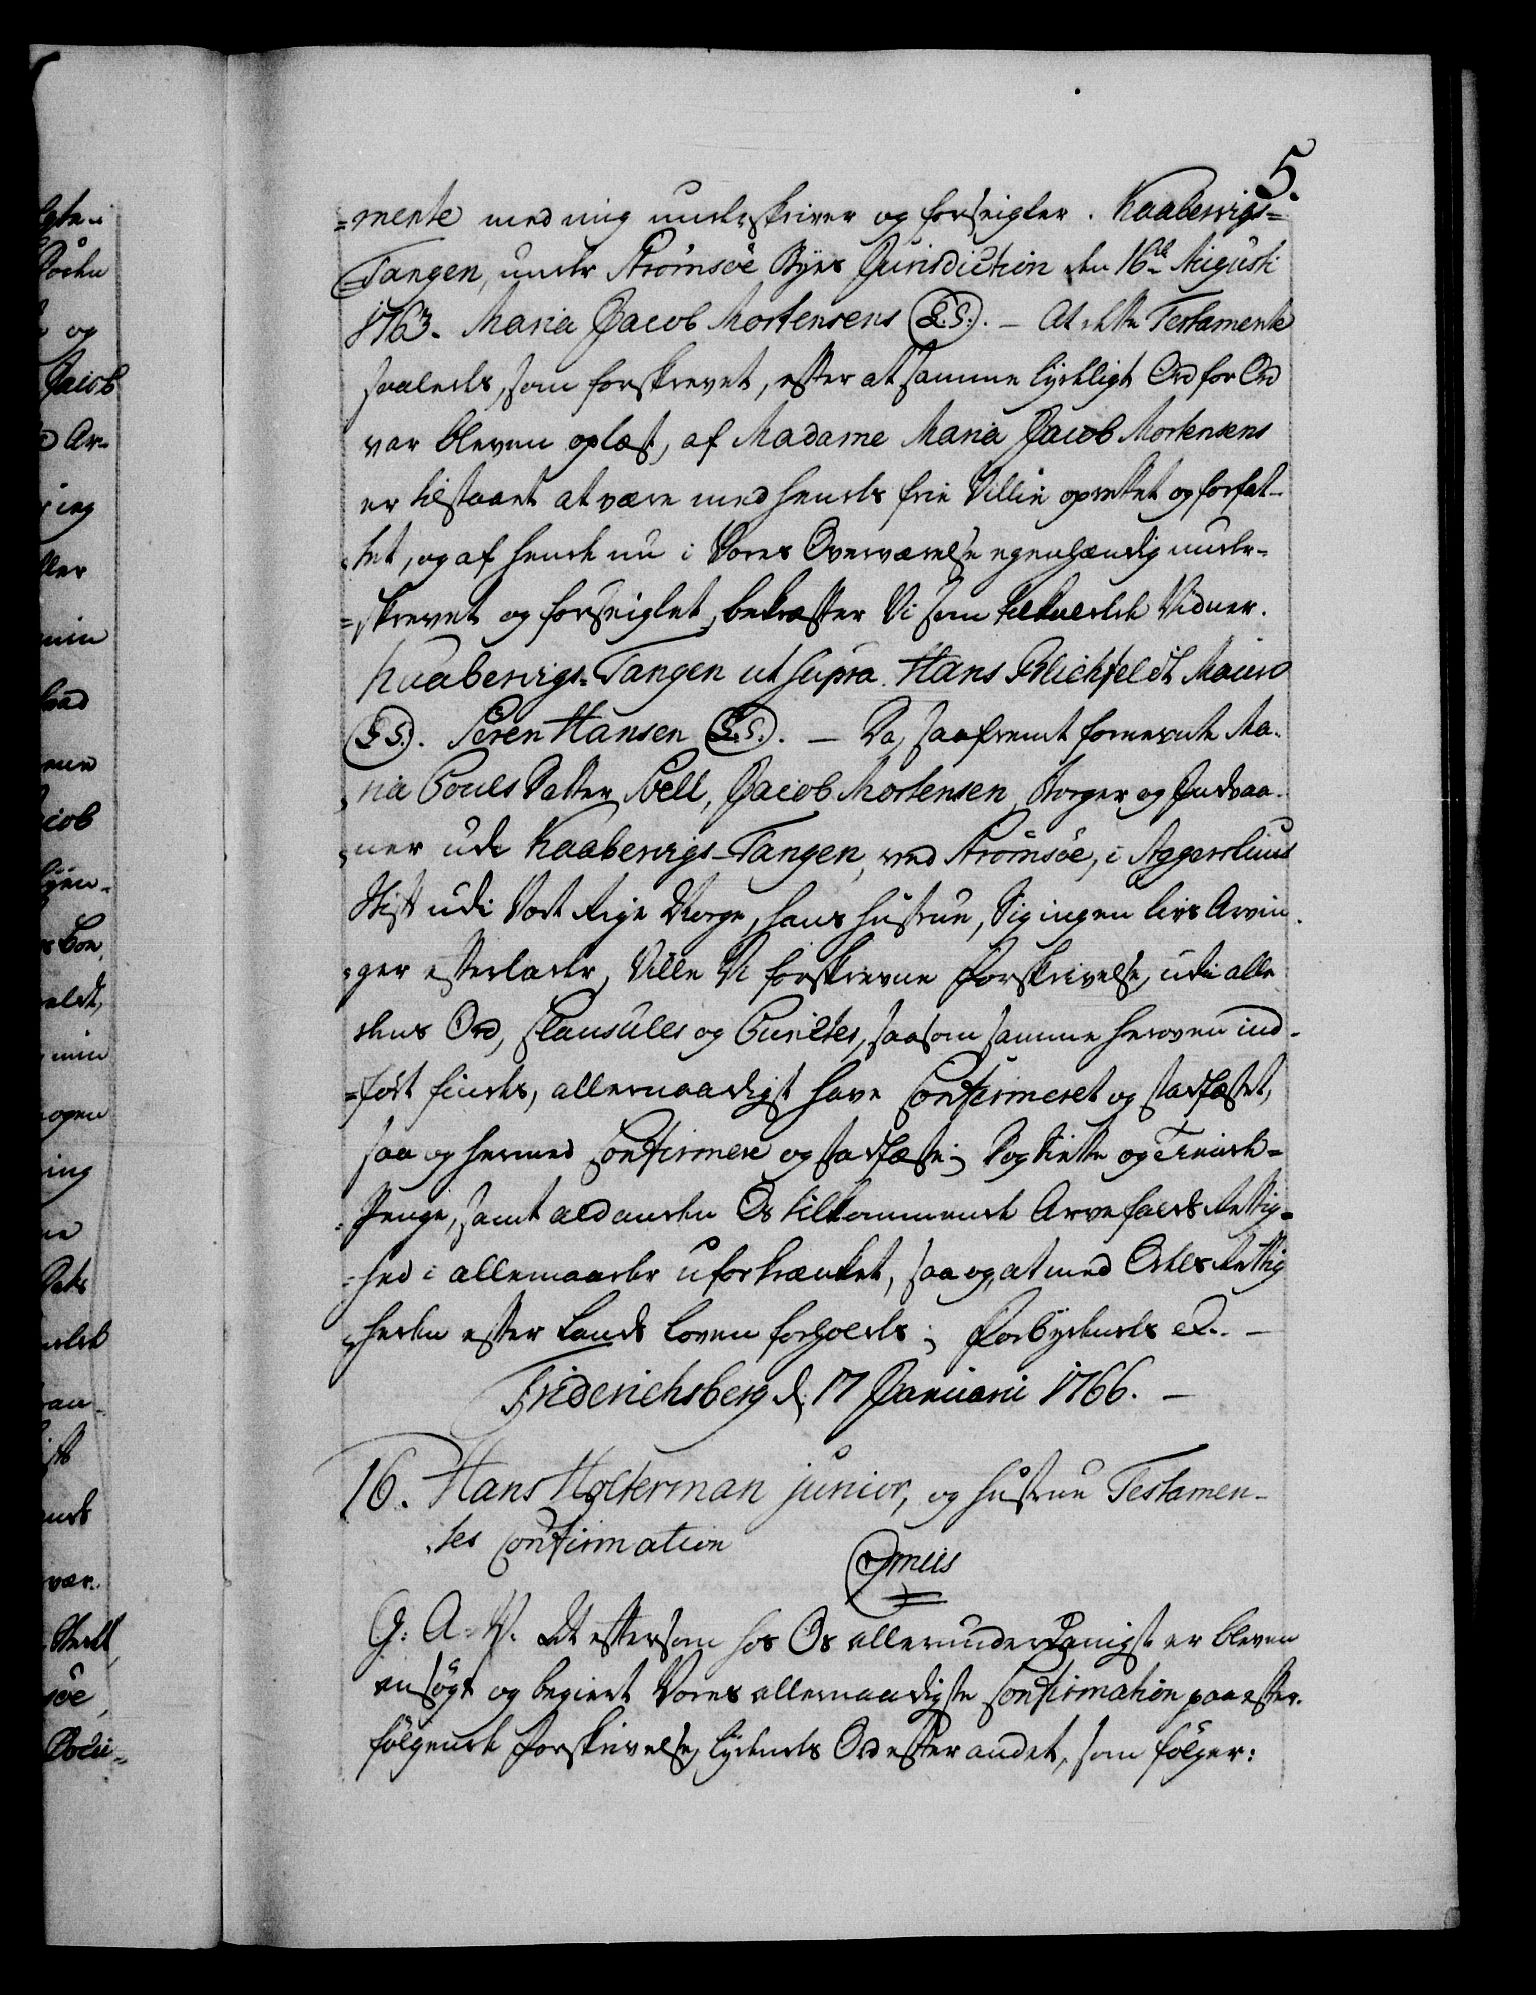 5.
=mente med mig underskriver og forseigler. Kaabervigs=
=Tangen, under Strömsöe Byes Jurisdiction den 16de Augusti
1763. Maria Jacob Mortensens (L.S.). – At dette Testamente
saaledes, som forskrevet, efter at samme lydeligt Ord for Ord
var bleven oplæst, af Madame Maria Jacob Mortensens
er tilstaaet at være med hendes frie Villie oprettet og forfat-
tet, og af hende nu i Vores Overværelse egenhændig under-
=skrevet og forseiglet, bekræfter Vi som tilkaldede Vidner.
Kaabervigs-Tangen ut supra. Hans Blichfeldt
(L.S.). Sören Hansen (L.S.). – Da, saafremt fornevnte Ma-
ria Pouls Datter, Jacob Mortensen, Borger og Indvaa-
ner udi Kaabervigs-Tangen, ved Strömsöe, i Aggershuus
Stift udi Vort Rige Norge, hans Hustrue, Sig ingen livs Arvin-
ger efterlader, Ville Vi forskrevne Forskrivelse, udi alle
dens Ord, Clausuler og Puncter, saasom samme heroven ind-
=fört findes, allernaadigst have Confirmeret og stadfæstet,
saa og hermed Confirmere og stadfæste; Dog Siette og Tiende=
=Penge, samt ald anden Os tilkommende Arvefalds Rettig=
=hed i allemaader uforkrænket, saa og, at med Odels Rettig
heden efter Lands Loven forholdes; Forbydendes &. –
Friderichsberg d. 17 Januarii 1766. –
16. Hans Holterman junior, og Hustrue Testamen-
tes Confirmation
G: A: V. At eftersom hos Os allerunderdanigst er bleven
ansögt og begiert Vores allernaadigste Confirmation paa efter-
fölgende Forskrivelse, lydendes Ord efter andet, som fölger: